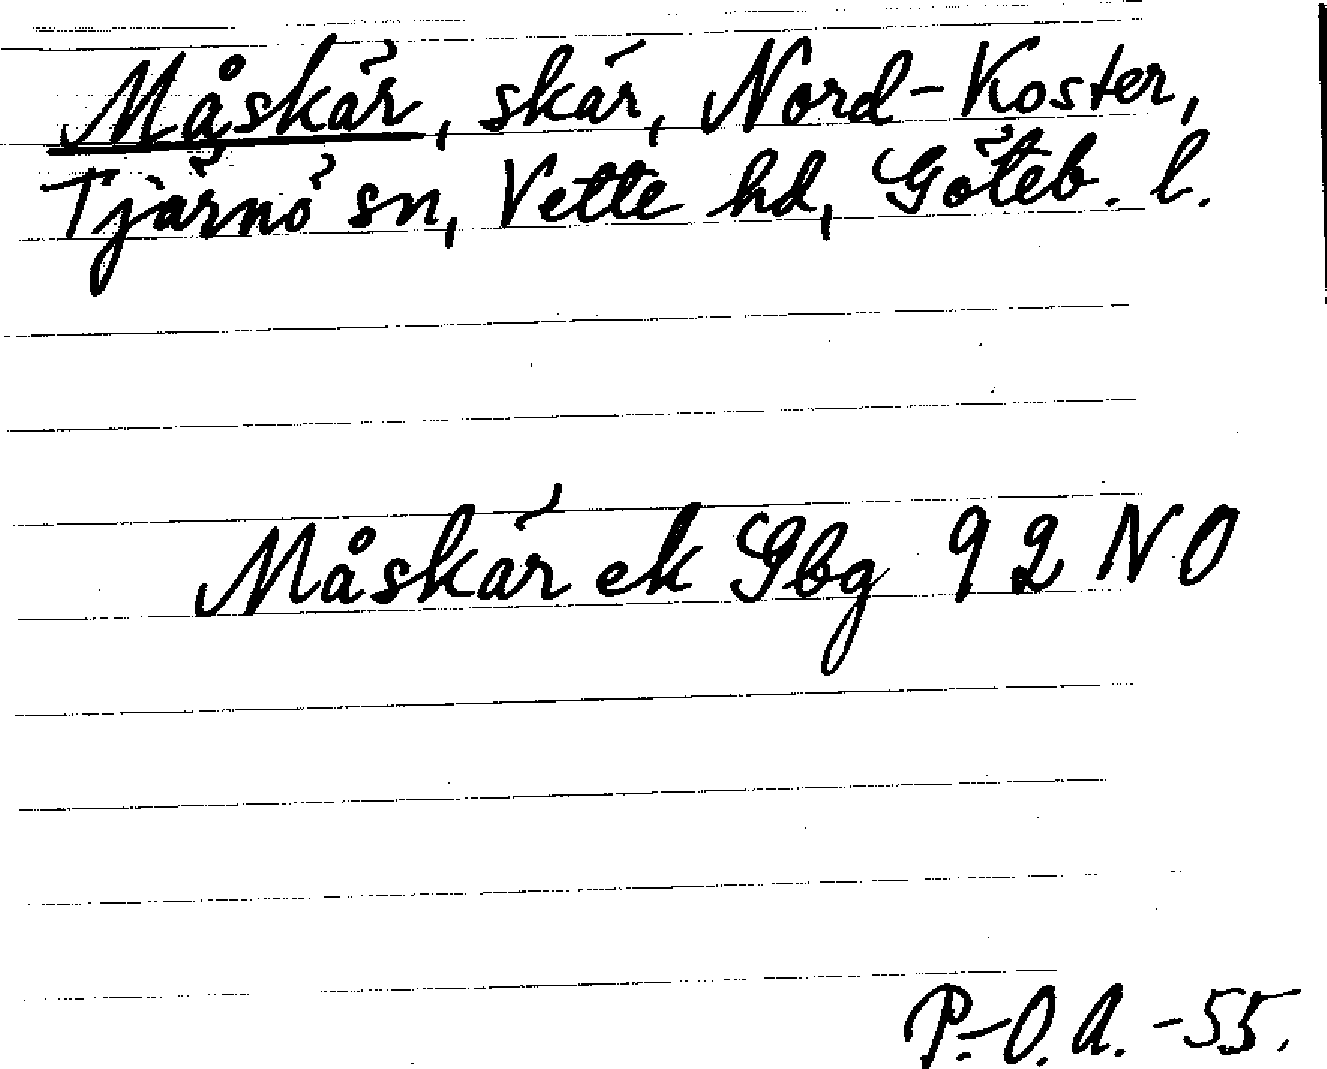 Måskär, skär, Nord-Koster,
Tjärnö sn, Vette hd, Göteb. l.
Måskär ek Gbg 92 NO
P.-O. A. -55.